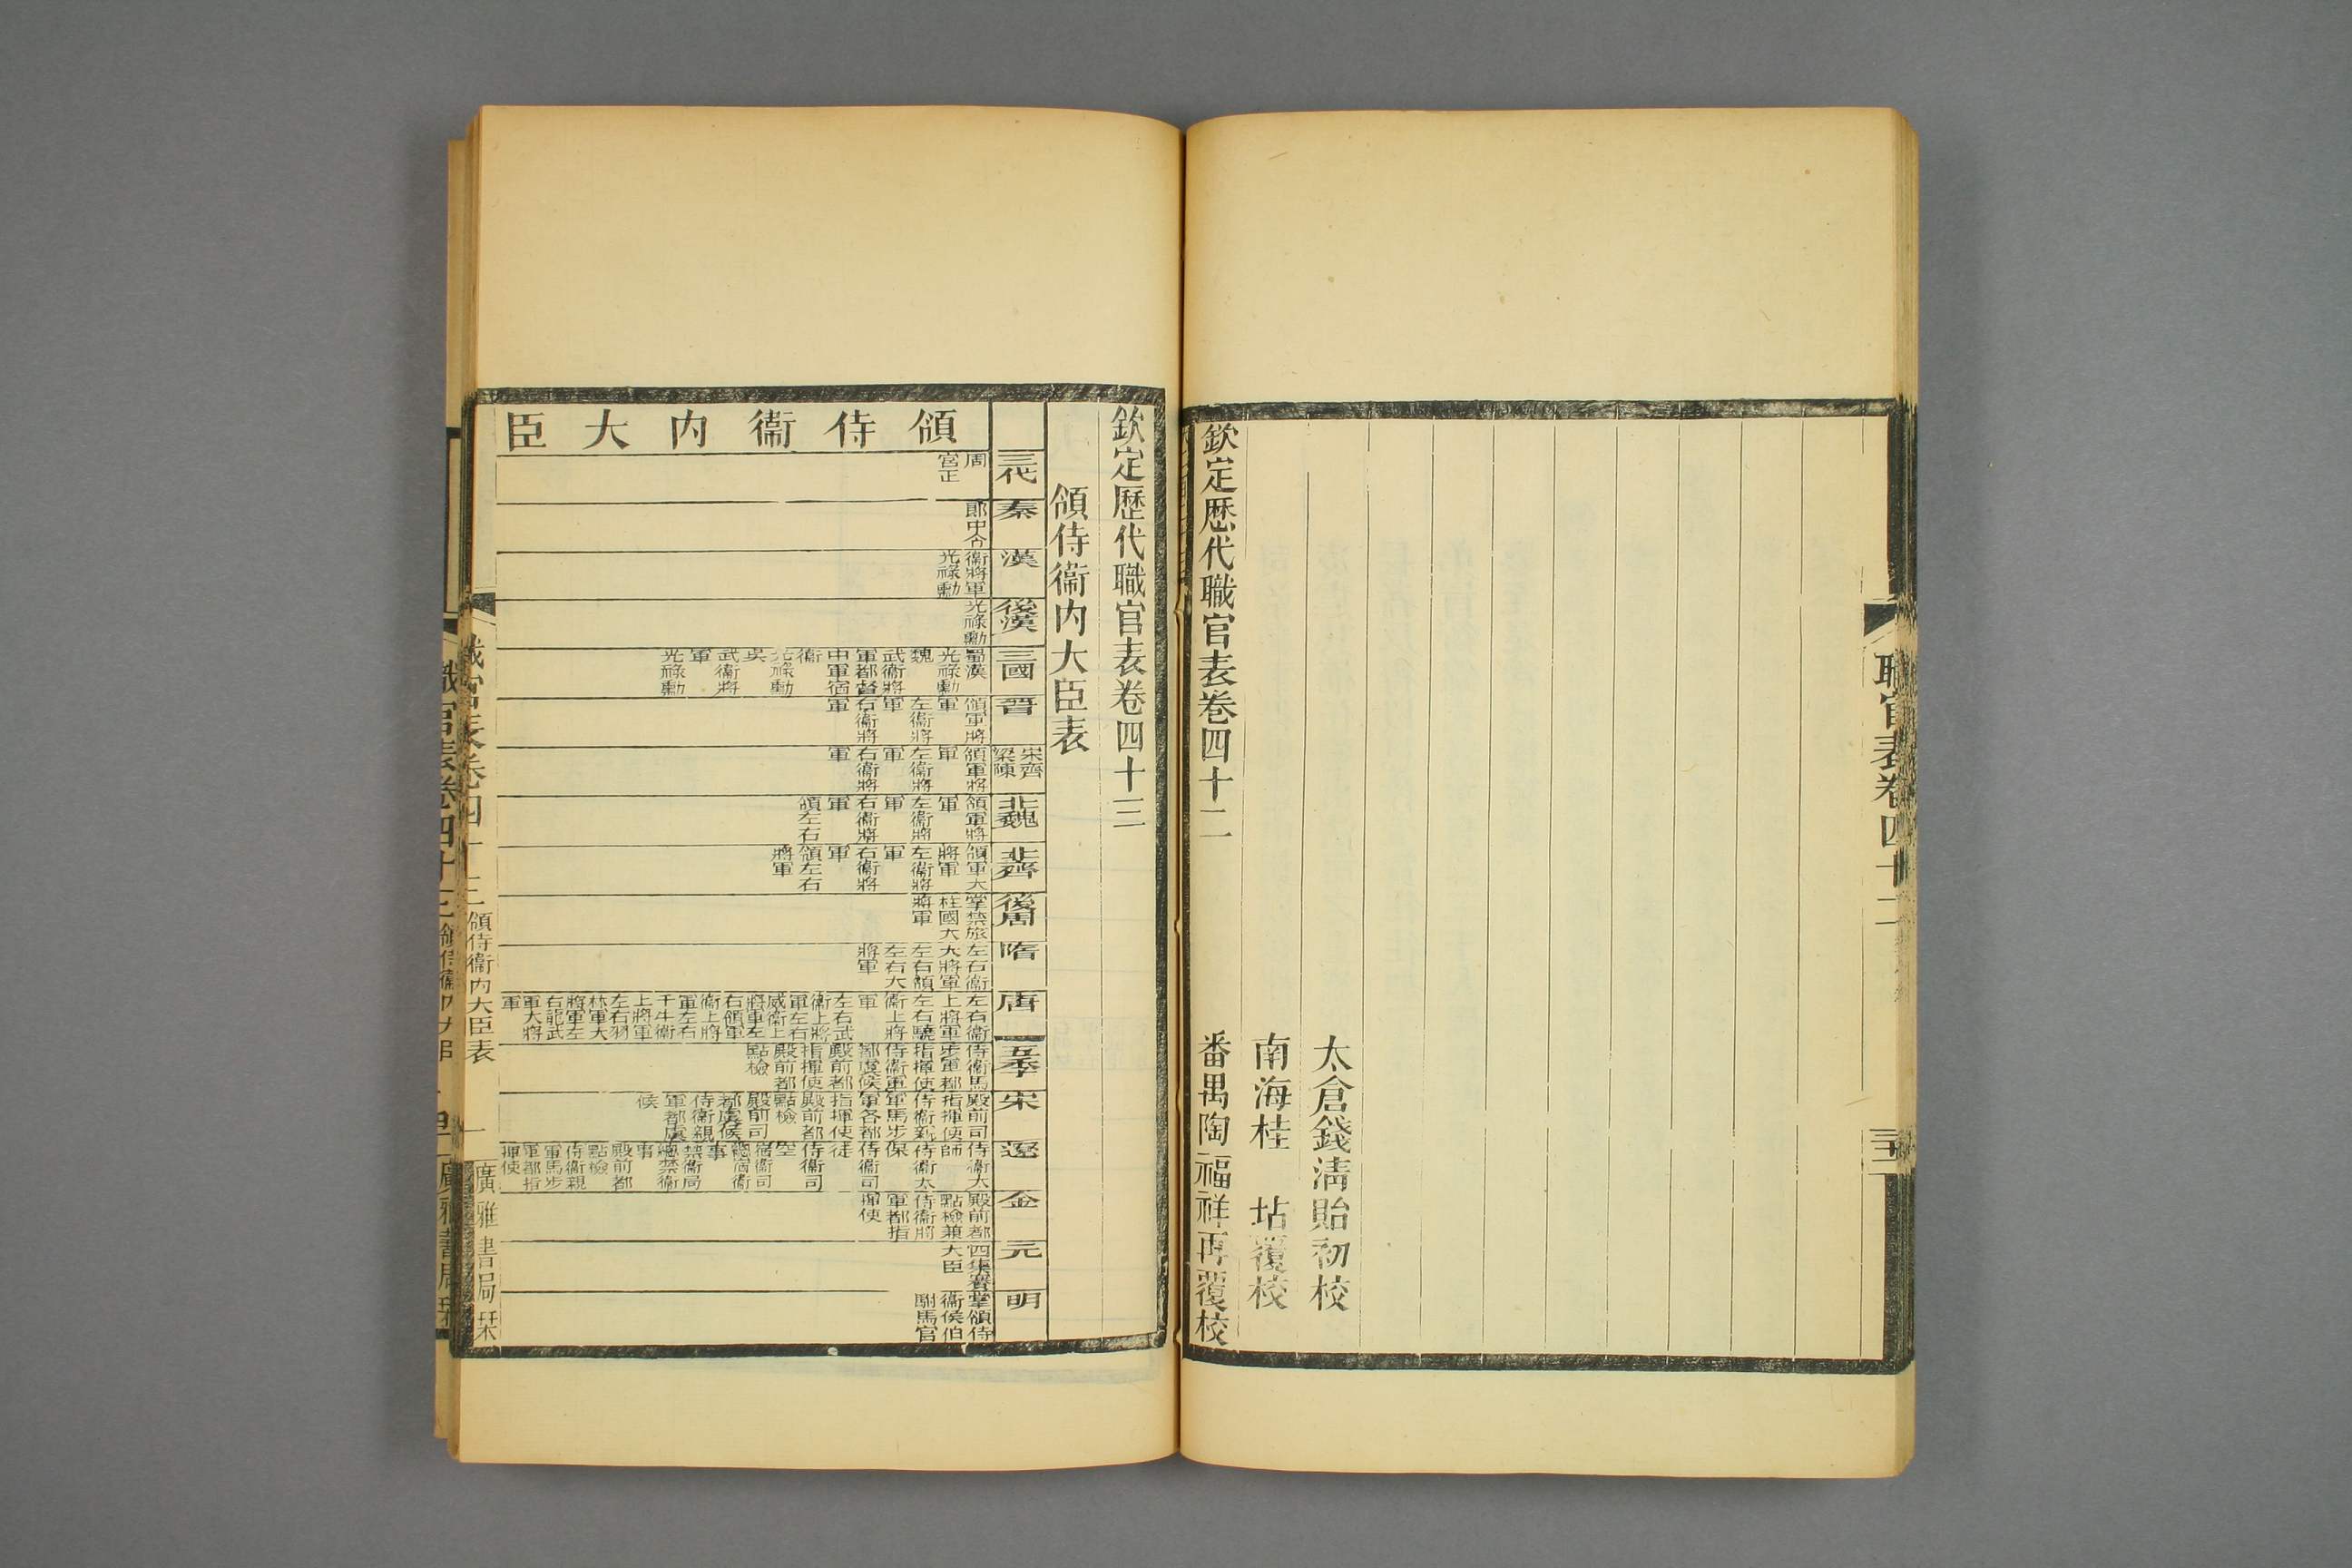 太倉錢清貽初校
南海桂　坫覆校
番禺陶福祥再覆校
欽定歷代職官表卷四十二
職官表卷四十二
欽定歷代職官表卷四十三
領侍衞内大臣表
領侍衞内大臣
三代
周
宮正
秦
郎中令
漢
衞將軍
光祿勳
後漢
光祿勳
三國
蜀漢
光祿勳
魏
武衞將
軍都督
中軍宿
衞
光祿勳
吳
武衞將
軍
光祿勳
晉
領軍將
軍
左衞將
軍
右衞將
軍
宋齊
梁陳
領軍將
軍
左衞將
軍
右衞將
軍
北魏
領軍將
軍
左衞將
軍
右衞將
軍
領左右
北齊
領軍大
將軍
左衞將
軍
右衞將
軍
領左右
將軍
後周
掌禁旅
柱國大
將軍
隋
左右衞
大將軍
左右領
左右大
將軍
唐
左右衞
上將軍
左右驍
衞上將
軍
左右武
衞上將
軍左右
威衞上
將軍左
右領軍
衞上將
軍左右
千牛衞
上將軍
左右羽
林軍大
將軍左
右龍武
軍大將
軍
五季
侍衞馬
步軍都
指揮使
侍衞軍
都虞候
殿前都
指揮使
殿前都
點檢
宋
殿前司
指揮使
侍衞親
軍馬步
軍各都
指揮使
殿前都
點檢
殿前司
都虞候
侍衞親
軍都虞
候
遼
侍衞大
師
侍衞太
保
侍衞司
徒
侍衞司
空
宿衞司
總宿衞
事
禁衞局
總禁衞
事
殿前都
點檢
侍衞親
軍馬步
軍都指
揮使
金
殿前都
點檢兼
侍衞將
軍都指
揮使
元
四集賽
大臣
明
掌領侍
衞侯伯
駙馬官
職官表卷四十三
領侍衞内大臣表
一
廣雅書局栞